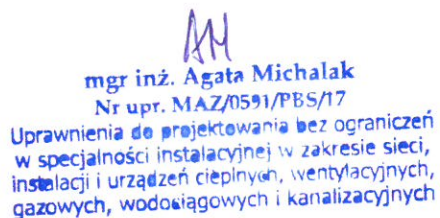 AM
mgr inż. Agata Michalak
Nr upr. MAZ/0591/PBS/17
Uprawnienia do projektowania bez ograniczeń
w specjalności instalacyjnej w zakresie sieci,
instalacji i urządzeń cieplnych, wentylacyjnych,
gazowych, wodociągowych i kanalizacyjnych